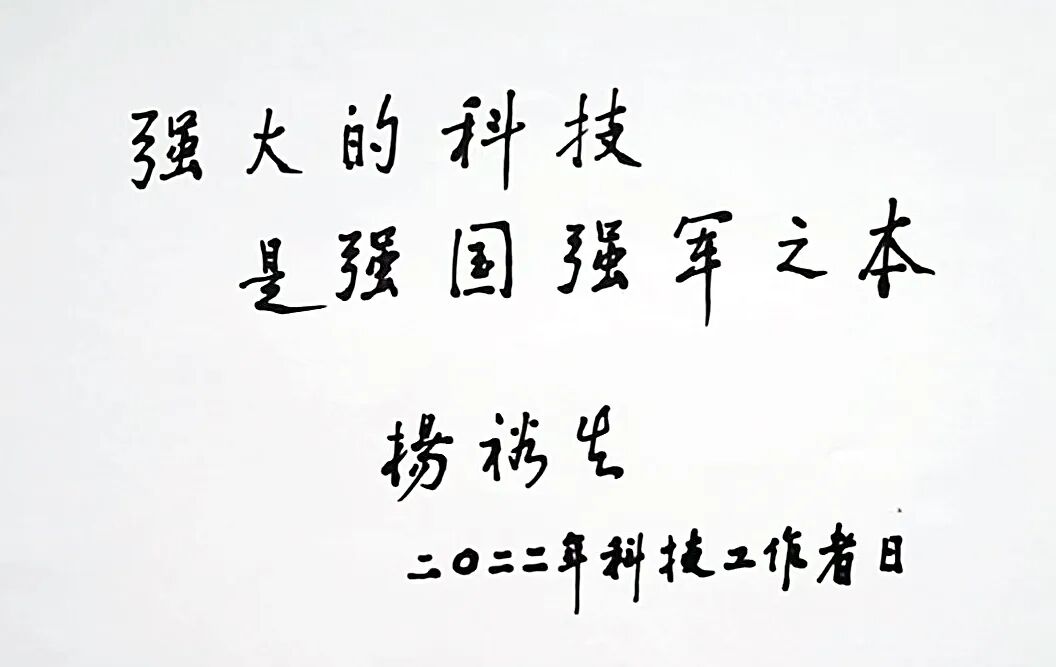 强大的科技
是强国强军之本
楊裕生
二〇二二年科技工作者日